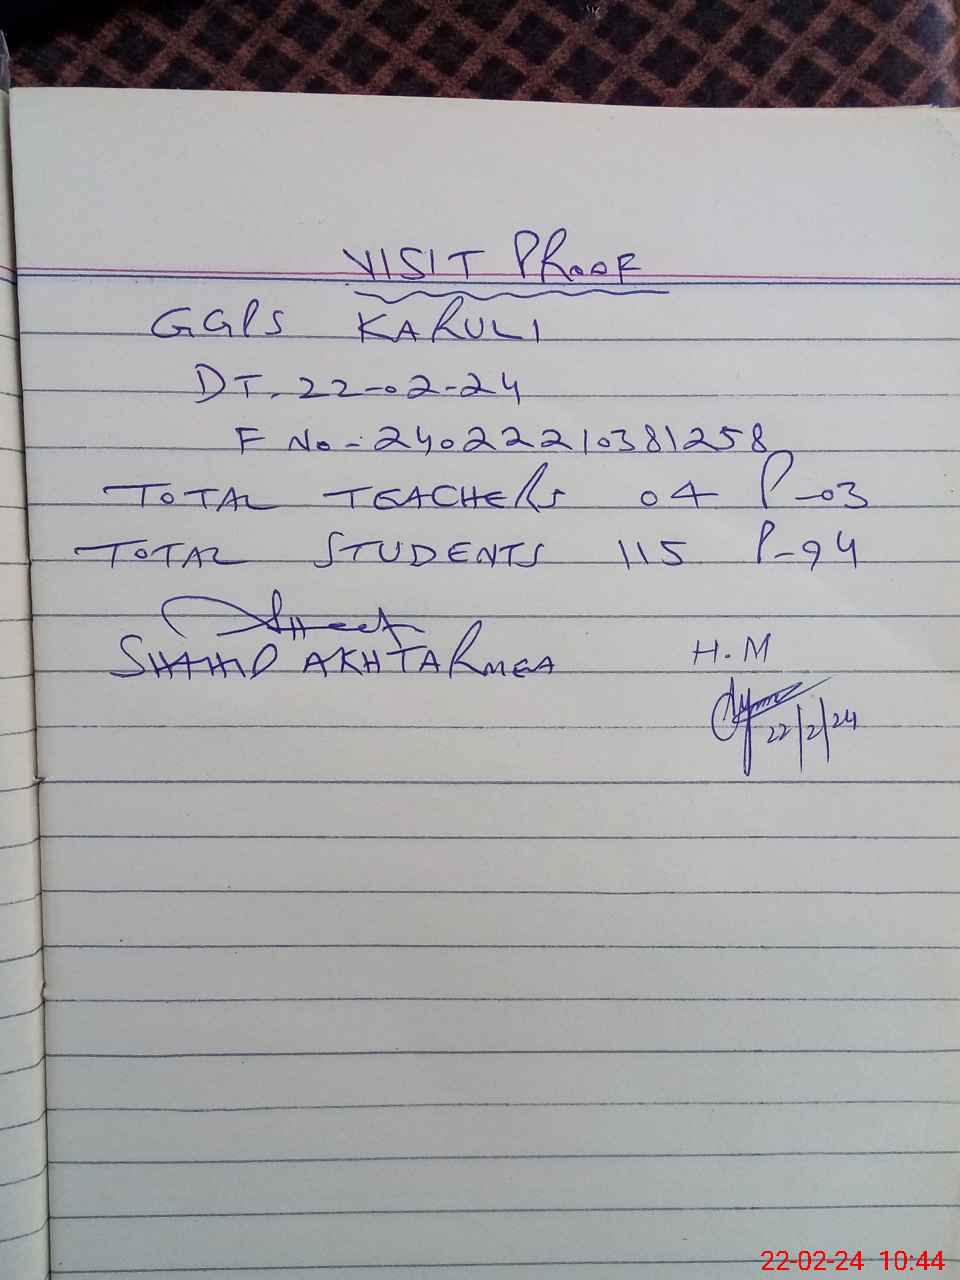 VISIT PROOF
GGPS KARULI
DT. 22-02-24
F No-: 24022210381258
TOTAL TEACHERS 04 P-03
TOTAL STUDENTS 115 P-94
SHAHID AKHTAR MEA
H.M
22/2/24
22-02-24 10:44